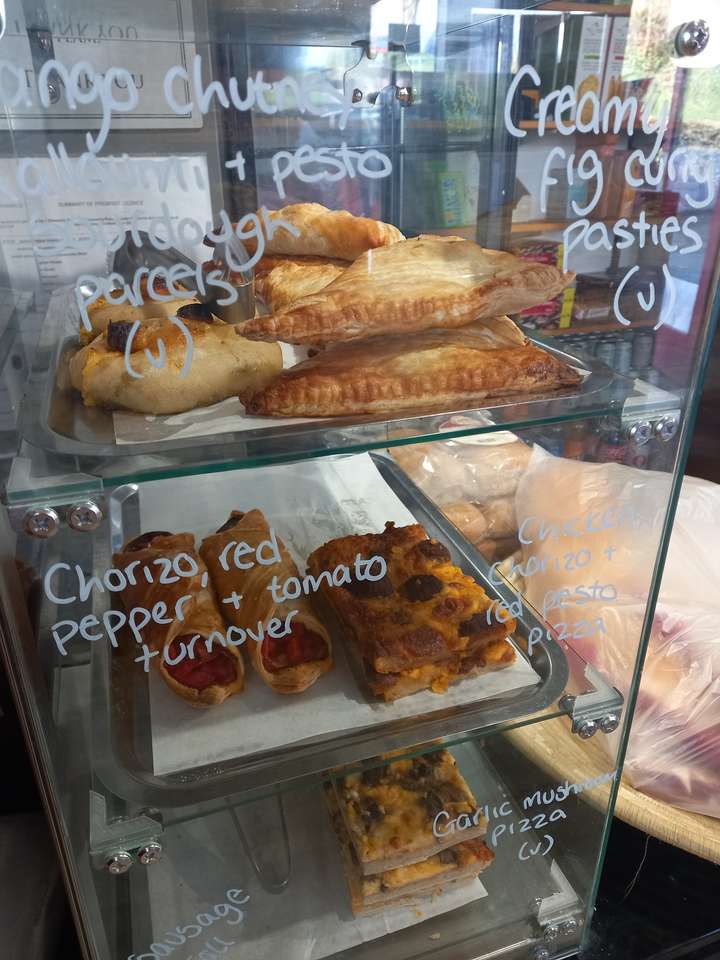 ango chutney
alloumi + pesto
sourdough
parcels
(v)
Creamy
fig curry
pasties
(v)
Chorizo, red
pepper + tomato
turnover
Chicken,
chorizo +
red pesto
pizza
Garlic mushroom
pizza
(v)
sausage